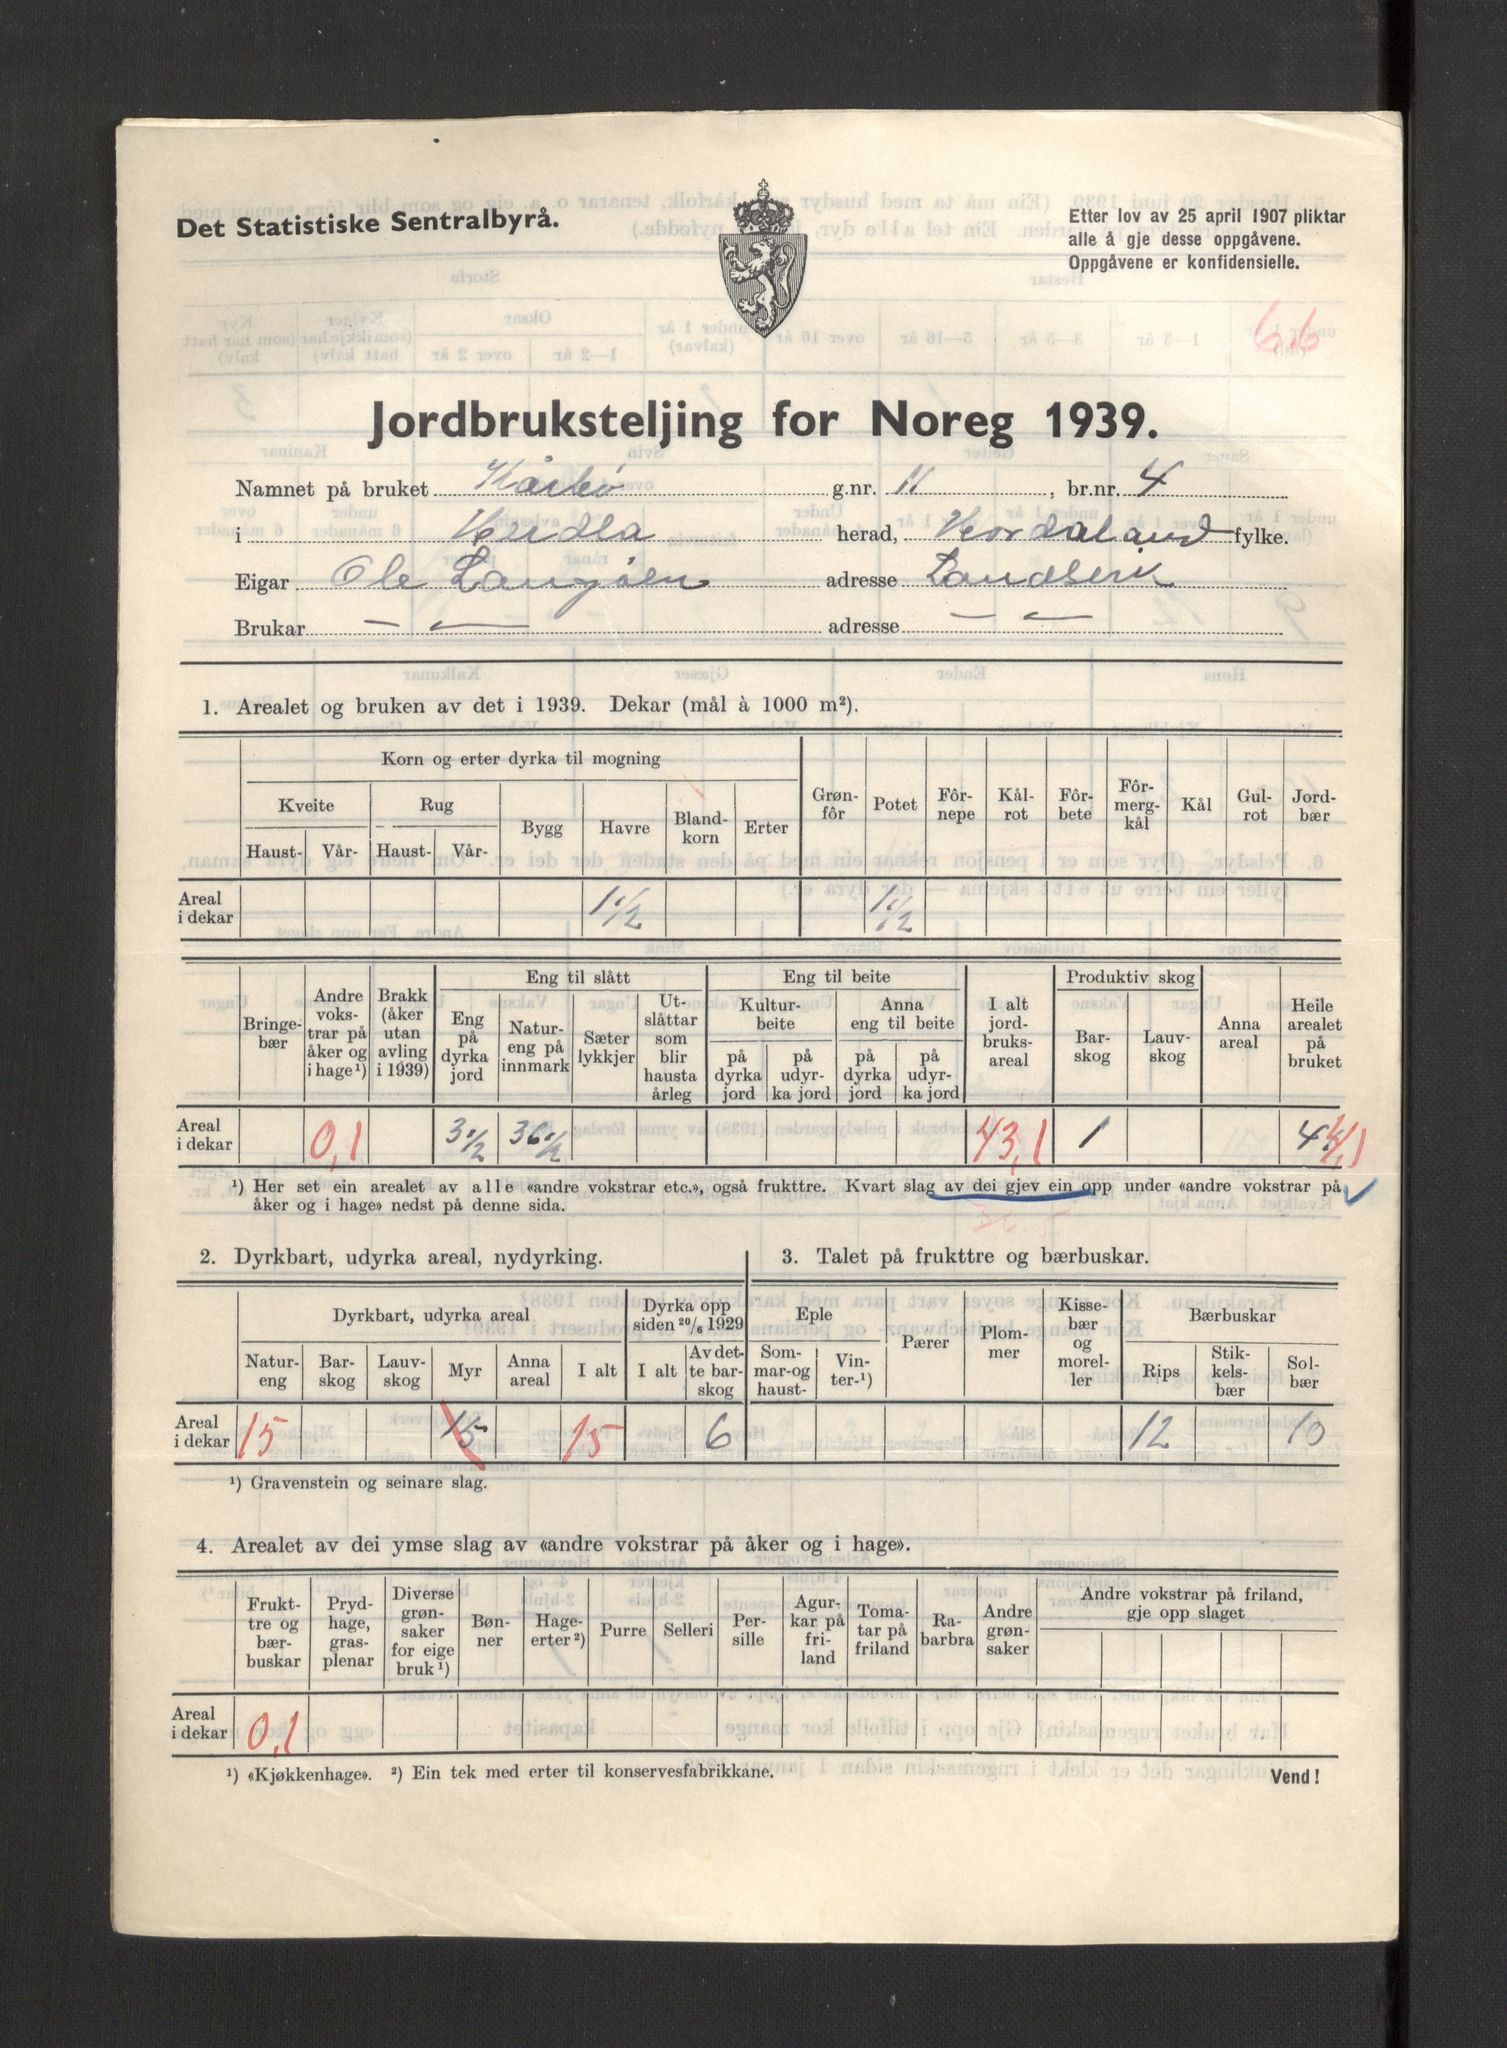 Det Statistiske Sentralbyrå.
Etter lov av 25 april 1907 pliktar
alle å gje desse oppgåvene.
Oppgåvene er konfidensielle.
6.6
Jordbruksteljing for Noreg 1939.
Namnet på bruket Kårbø g.nr. 11, br.nr. 4
i Herdla herad, Hordaland fylke.
Eigar Ole Langøen adresse Landserk
Brukar — — adresse — —
1. Arealet og bruken av det i 1939. Dekar (mål à 1000 m²).
Korn og erter dyrka til mogning
Kveite Rug Bygg Havre Blandkorn Erter Grønfôr Potet Fôrnepe Kålrot Fôrbete Fôrmergkål Kål Gulrot Jordbær
Haust- Vår- Haust- Vår-
Areal i dekar 1 1/2 1 1/2
Eng til slått Eng til beite Produktiv skog
Bringebær Andre vokstrar på åker og i hage¹) Brakk (åker utan avling i 1939) Eng på dyrka jord Natureng på innmark Sæterlykkjer Utslåttar som blir hausta årleg Kulturbeite Anna eng til beite I alt jordbruksareal Barskog Lauvskog Anna areal Heile arealet på bruket
på dyrka jord på udyrka jord på dyrka jord på udyrka jord
Areal i dekar 0,1 3 1/2 36 1/2 43,1 1 44,1
¹) Her set ein arealet av alle «andre vokstrar etc.», også frukttre. Kvart slag av dei gjev ein opp under «andre vokstrar på
åker og i hage» nedst på denne sida.
2. Dyrkbart, udyrka areal, nydyrking.
Dyrkbart, udyrka areal Dyrka opp siden 20/6 1929
Natureng Barskog Lauvskog Myr Anna areal I alt I alt Av dette barskog
Areal i dekar 15 15 15 6
¹) Gravenstein og seinare slag.
3. Talet på frukttre og bærbuskar.
Eple Pærer Plommer Kissebær og moreller Bærbuskar
Sommar- og haust- Vinter-¹) Rips Stikkelsbær Solbær
12 10
4. Arealet av dei ymse slag av «andre vokstrar på åker og i hage».
Frukttre og bærbuskar Prydhage, grasplenar Diverse grønsaker for eige bruk¹) Bønner Hageerter²) Purre Selleri Persille Agurkar på friland Tomatar på friland Rabarbra Andre grønsaker Andre vokstrar på friland, gje opp slaget
Areal i dekar 0,1
¹) «Kjøkkenhage». ²) Ein tek med erter til konservesfabrikkane.
Vend!